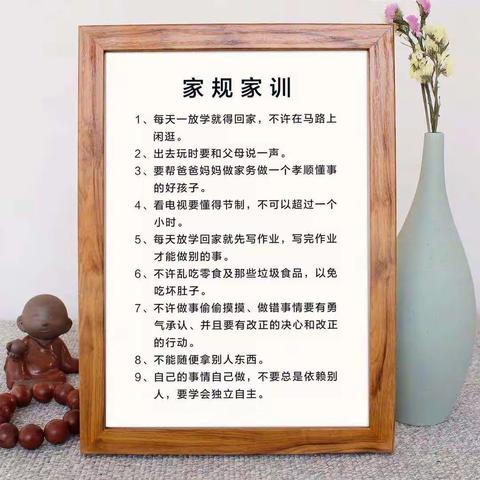 家规家训
1、每天一放学就得回家，不许在马路上
闲逛。
2、出去玩时要和父母说一声。
3、要帮爸爸妈妈做家务做一个孝顺懂事
的好孩子。
4、看电视要懂得节制，不可以超过一个
小时。
5、每天放学回家就先写作业，写完作业
才能做别的事。
6、不许乱吃零食及那些垃圾食品，以免
吃坏肚子。
7、不许做事偷偷摸摸、做错事情要有勇
气承认、并且要有改正的决心和改正
的行动。
8、不能随便拿别人东西。
9、自己的事情自己做，不要总是依赖别
人，要学会独立自主。